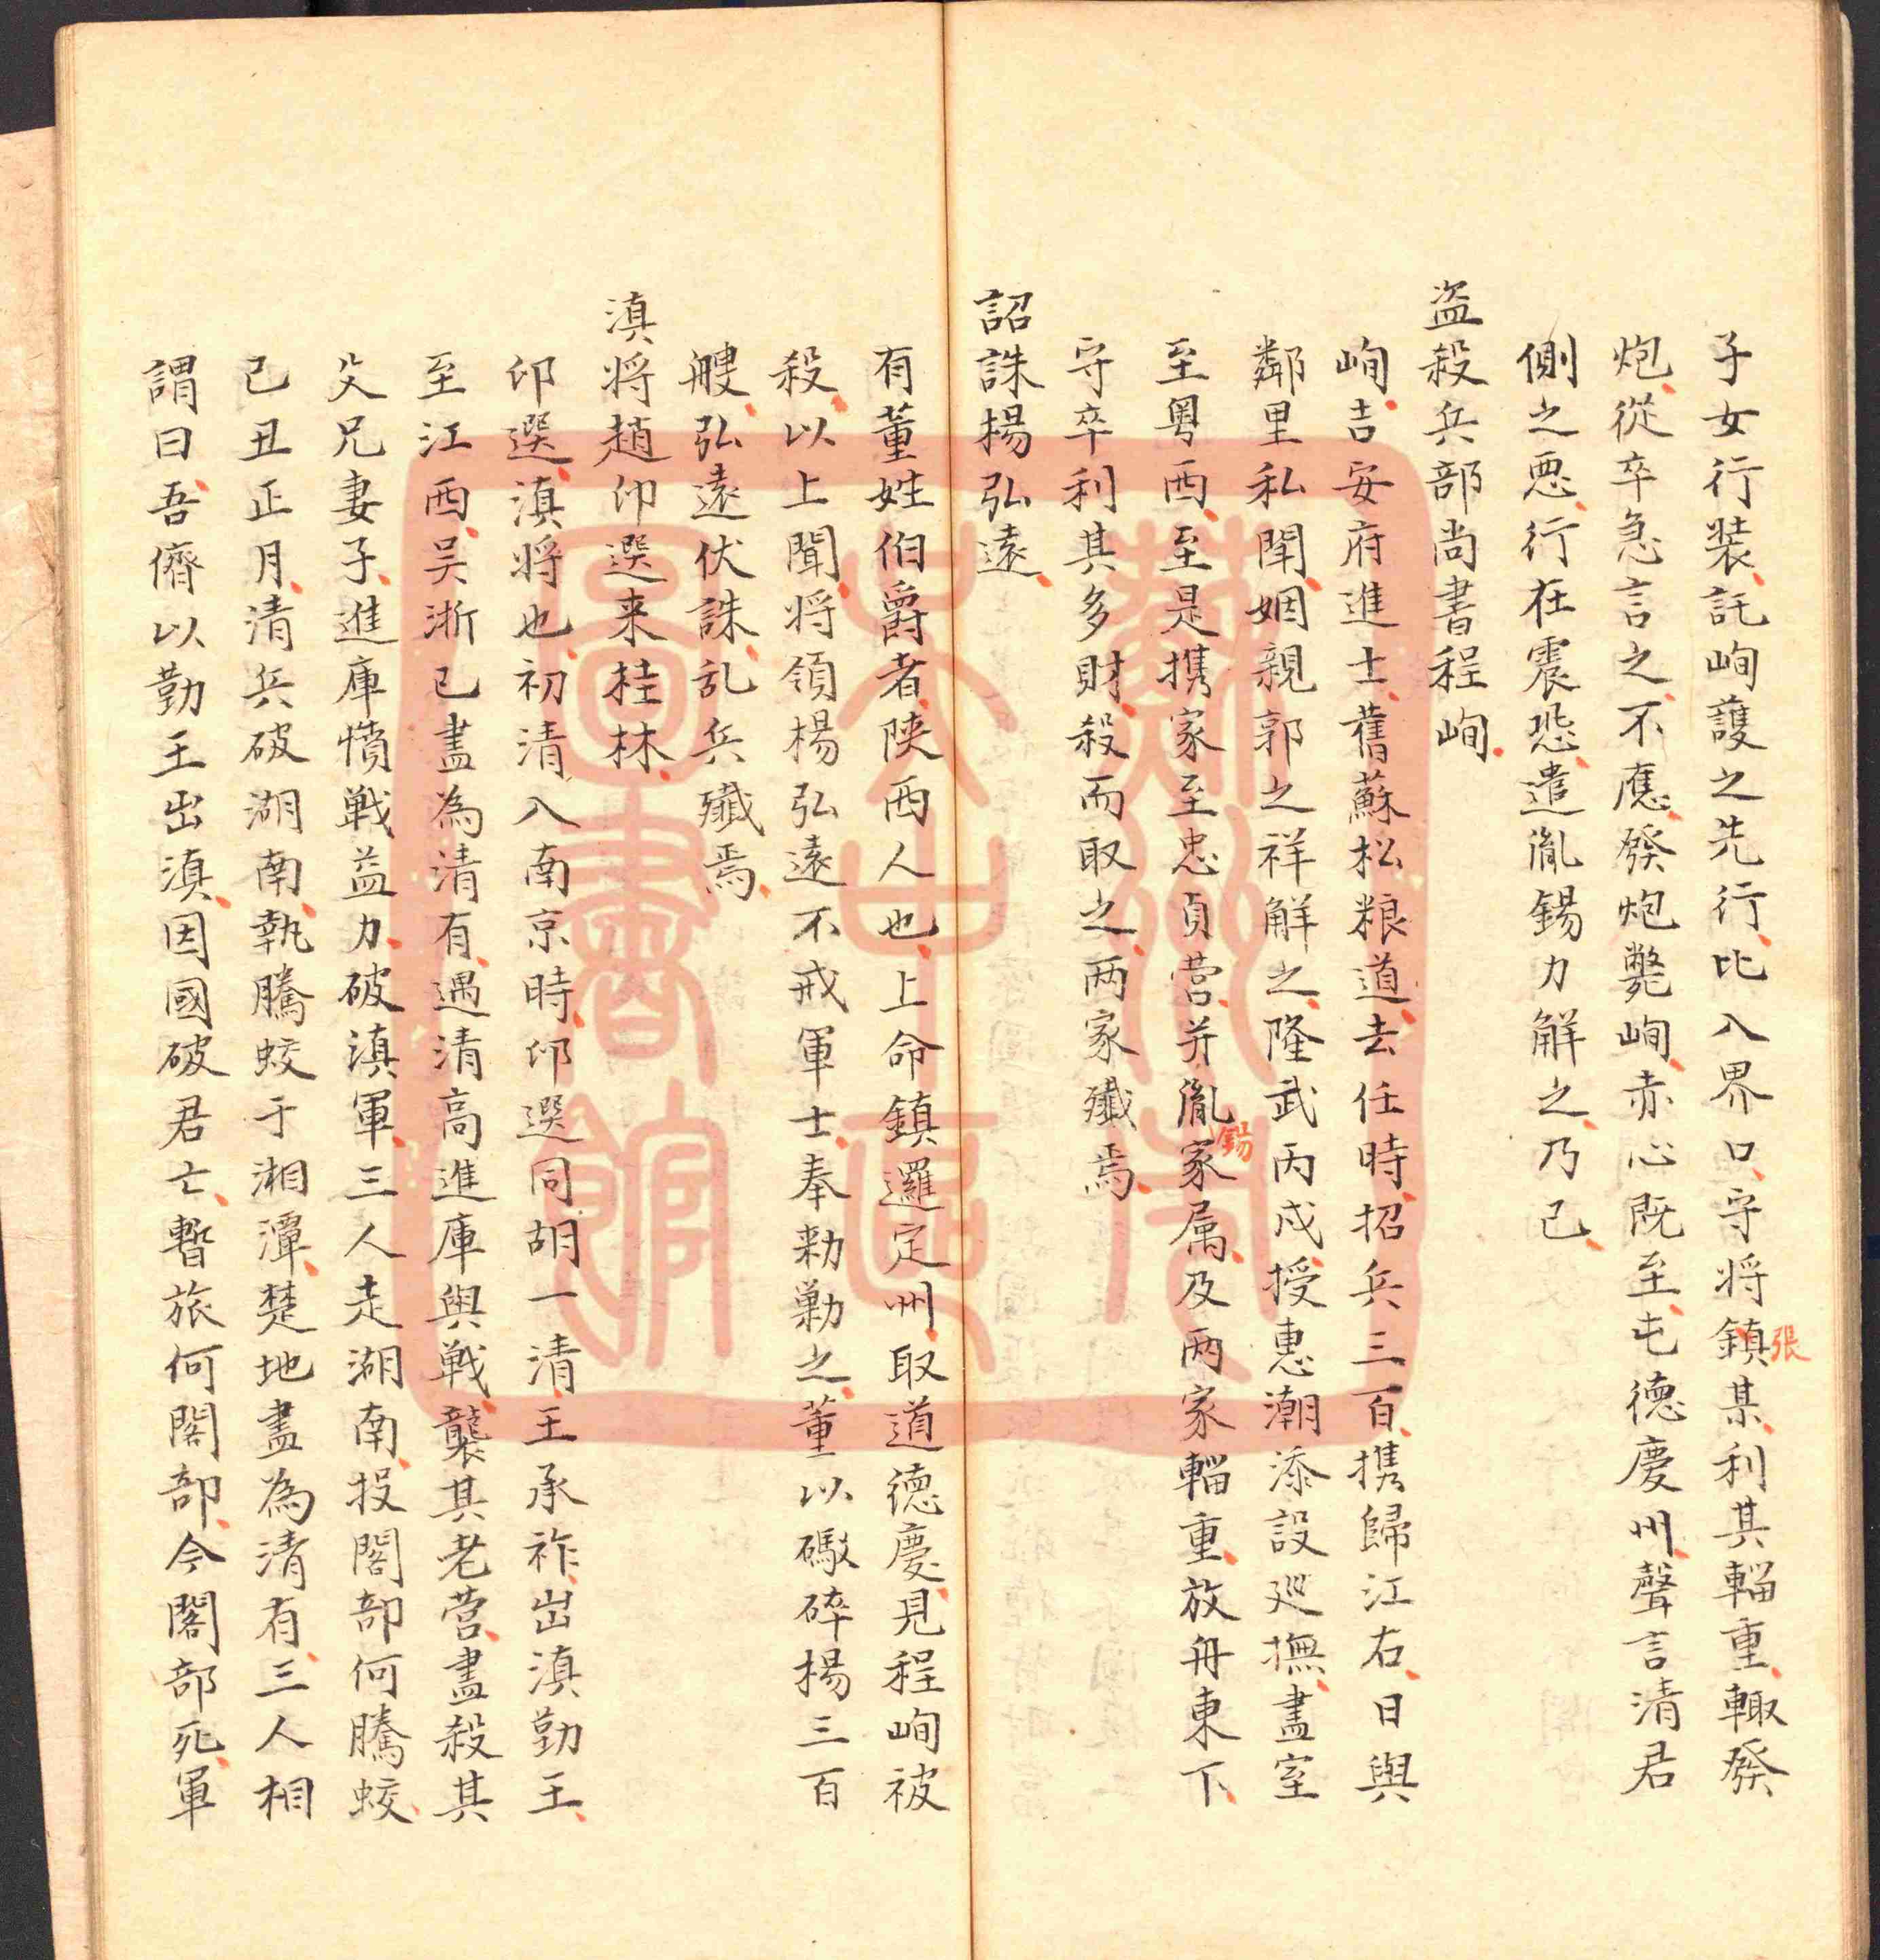 子女行裝託峋護之先行比入界口守将鎮某利其輜重輙發
張
炮從卒急言之不應發炮斃峋赤心既至屯德慶州聲言清君
側之惡行在震恐遣胤錫力解之乃已
盗殺兵部尚書程峋
峋吉安府進士舊蘇松粮道去任時招兵三百携歸江右日與
鄰里私鬧姻親郭之祥解之隆武丙戌授惠潮添設廵撫盡室
至粤西至是携家至忠貞营并胤家属及两家輜重放舟東下
錫
守卒利其多財殺而取之两家殲焉
詔誅楊弘遠
有董姓伯爵者陕西人也上命鎮邏定州取道德慶見程峋被
殺以上聞将領楊弘遠不戒軍士奉勑勦之董以礮碎楊三百
艘弘遠伏誅乱兵殲焉
滇将趙印選来桂林
印選滇将也初清入南京時印選同胡一清王承祚出滇勤王
至江西吴浙已盡為清有遇清高進庫與戦襲其老营盡殺其
父兄妻子進庫憤戦益力破滇軍三人走湖南投閣部何騰蛟
己丑正月清兵破湖南執騰蛟于湘潭楚地盡為清有三人相
謂曰吾儕以勤王出滇因國破君亡暫旅何閣部今閣部死軍
蘇州文古區圖書館